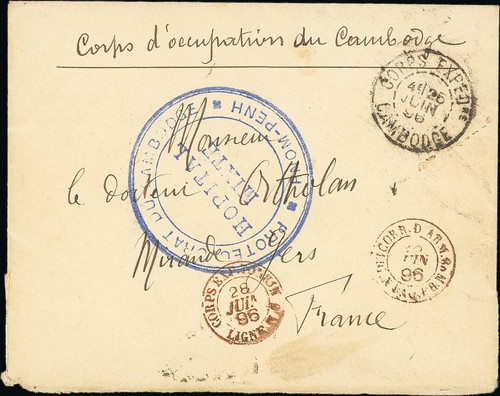 Corps d'occupation du Cambodge
CORPS EXPEDRE
4E/26
JUIN
96
CAMBODGE
PROTECTORAT DU CAMBODGE
PHNOM-PENH
HOPITAL
MIXTE
Monsieur
le docteur Ortholan
Mirande Gers
France
CORPS EXP
28
JUIN
96
LIGNE N
CORR. D ARM.
JUIN
96